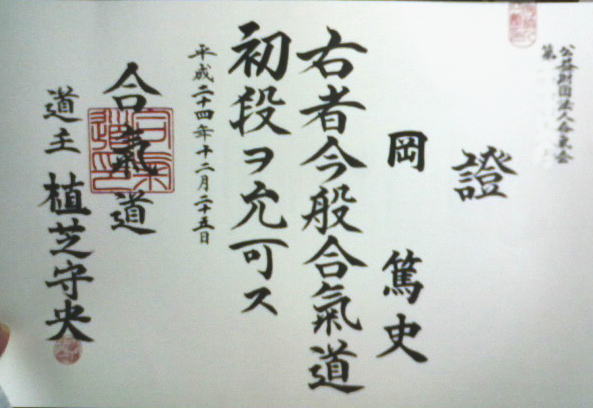 公益財団法人合気会
第
證
岡 篤史
右者今般合氣道
初段ヲ允可ス
平成二十四年十二月二十五日
合氣道
道主 植芝守央